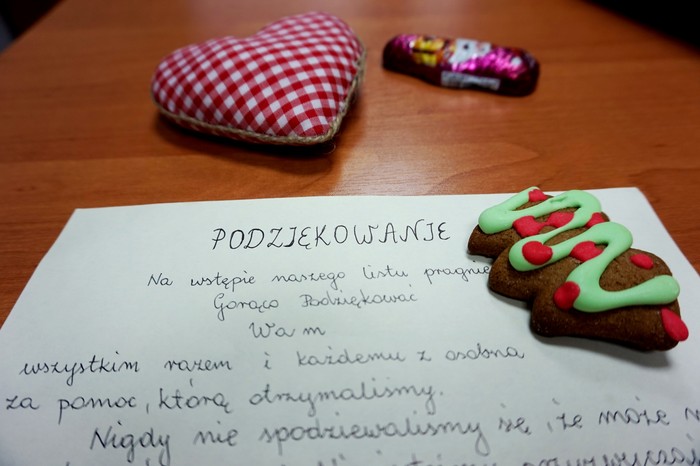 PODZIĘKOWANIE
Na wstępie naszego listu
Gorąco Podziękować
Wam
wszystkim razem i każdemu z osobna
za pomoc, którą otrzymaliśmy.
Nigdy nie spodziewaliśmy się, że może